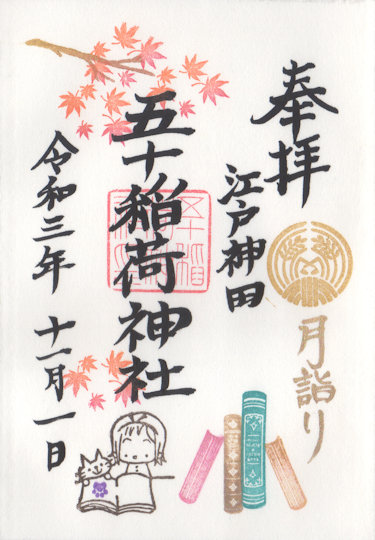 奉拝
月詣り
江戸神田
五十稲荷神社
令和三年 十一月一日